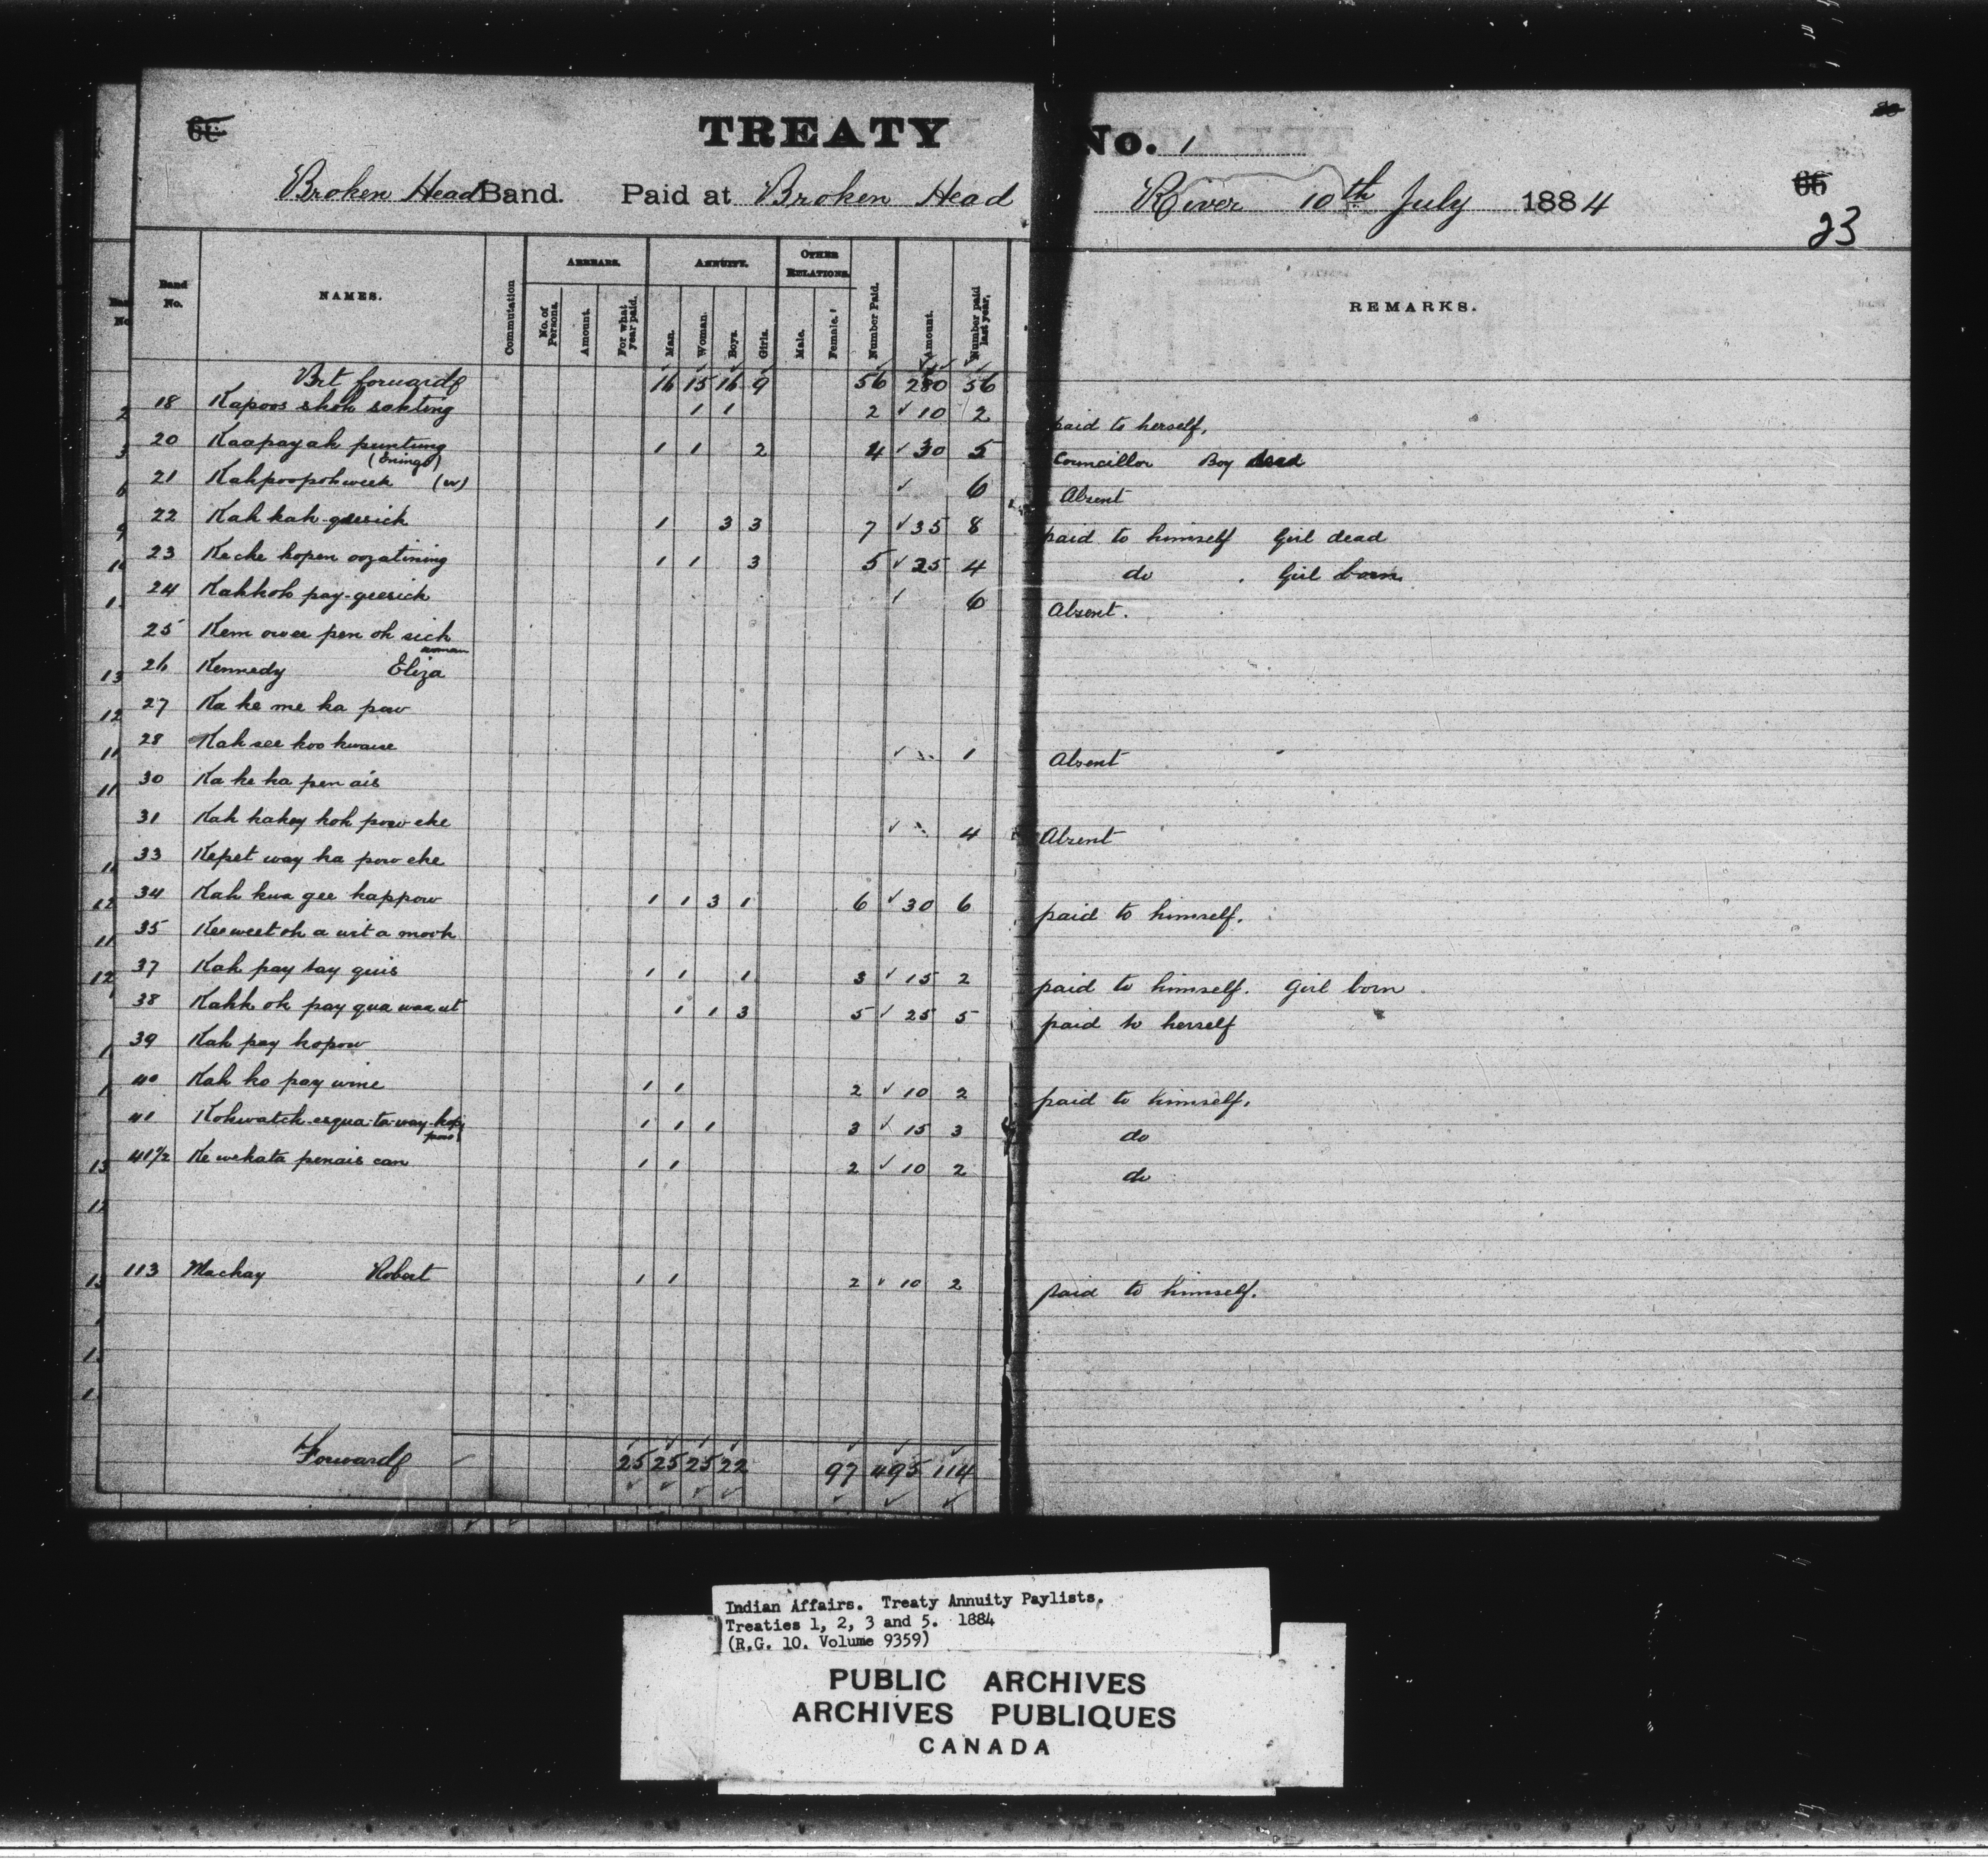 TREATY No. 1
Broken Head Band. Paid at Broken Head River 10th July 1884
66
23
Band No. NAMES. Commutation ARREARS. No. of Persons. Amount. For what year paid. ANNUITY. Man. Woman. Boys. Girls. OTHER RELATIONS. Male. Female. Number Paid. Amount. Number paid last year. REMARKS.
Brt forward 16 15 16 9 56 280 56
18 Kapoos skok sakting 1 1 2 ✓ 10 2 paid to herself,
20 Kaapayah puntung 1 1 2 4 ✓ 30 5 Councillor Boy dead
21 Kahpoopohweek (w) ✓ 6 Absent
22 Kah kah-geesick 1 3 3 7 ✓ 35 8 paid to himself Girl dead
23 Keche kopen oozatining 1 1 3 5 ✓ 25 4 do Girl born
24 Kahkoh pay-geesick ✓ 6 Absent.
25 Kem owee pen oh sich
woman
26 Kennedy Eliza
27 Ka ke me ka pow
28 Kah see koo kwause ✓ 1 Absent
30 Ka ke ka pen ais
31 Kah kakey koh pow eke ✓ 4 Absent
33 Kepet way ka pow eke
34 Kah kwa gee kappow 1 1 3 1 6 ✓ 30 6 paid to himself.
35 Keeweet oh a wit a mook
37 Kah pay tay quis 1 1 1 3 ✓ 15 2 paid to himself. Girl born
38 Kahk ok pay qua waa ut 1 1 3 5 ✓ 25 5 paid to herself
39 Kah pay kopow
40 Kah ko pay wine 1 1 2 ✓ 10 2 paid to himself.
41 Kohwatch-esqua-ta-way-kap 1 1 1 3 ✓ 15 3 do
pow
41½ Ke wekata penais can 1 1 2 ✓ 10 2 do
113 Mackay Robert 1 1 2 ✓ 10 2 paid to himself.
Forward 25 25 25 22 97 495 114
Indian Affairs. Treaty Annuity Paylists.
Treaties 1, 2, 3 and 5. 1884
(R.G. 10. Volume 9359)
PUBLIC ARCHIVES
ARCHIVES PUBLIQUES
CANADA